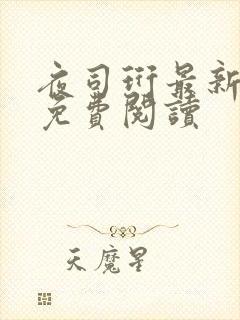 夜司珩最新
免費閱讀
天魔星